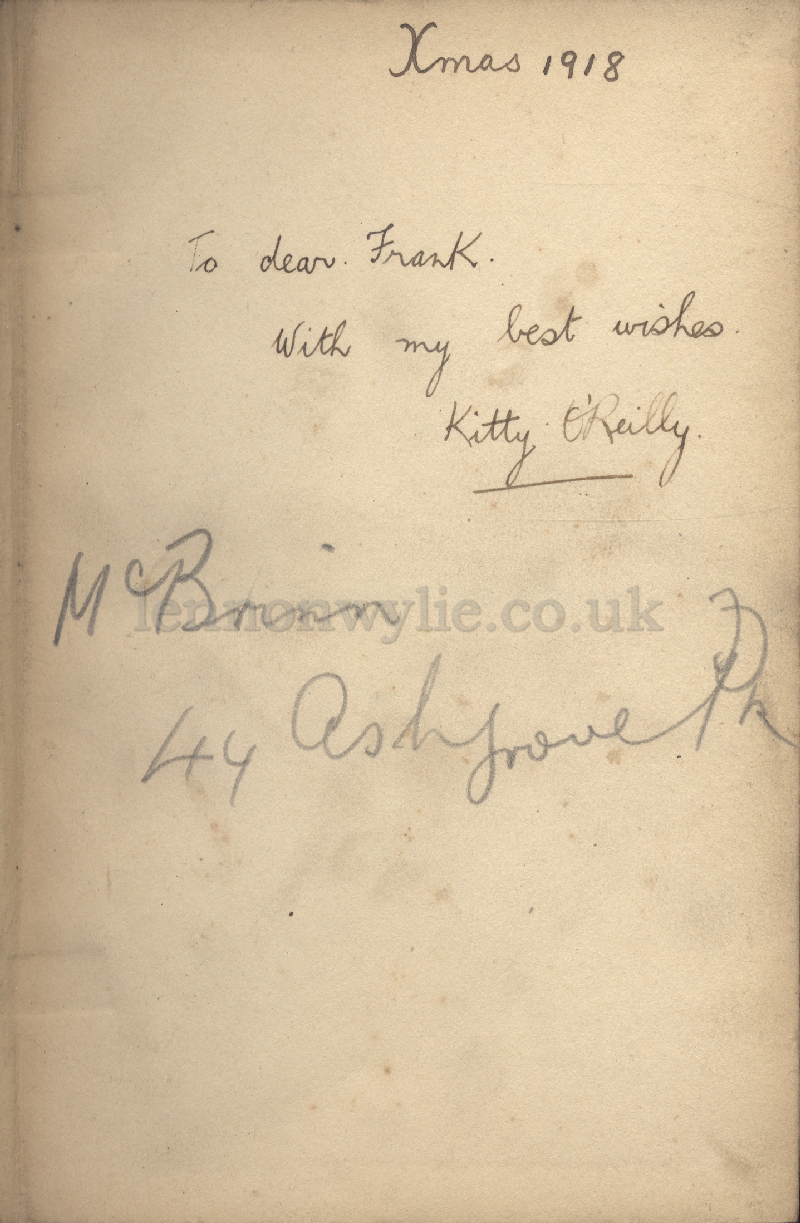 Xmas 1918
To dear Frank.
With my best wishes.
Kitty O'Reilly.
McBrinn
lennonwylie.co.uk
44 Ashgrove Pk